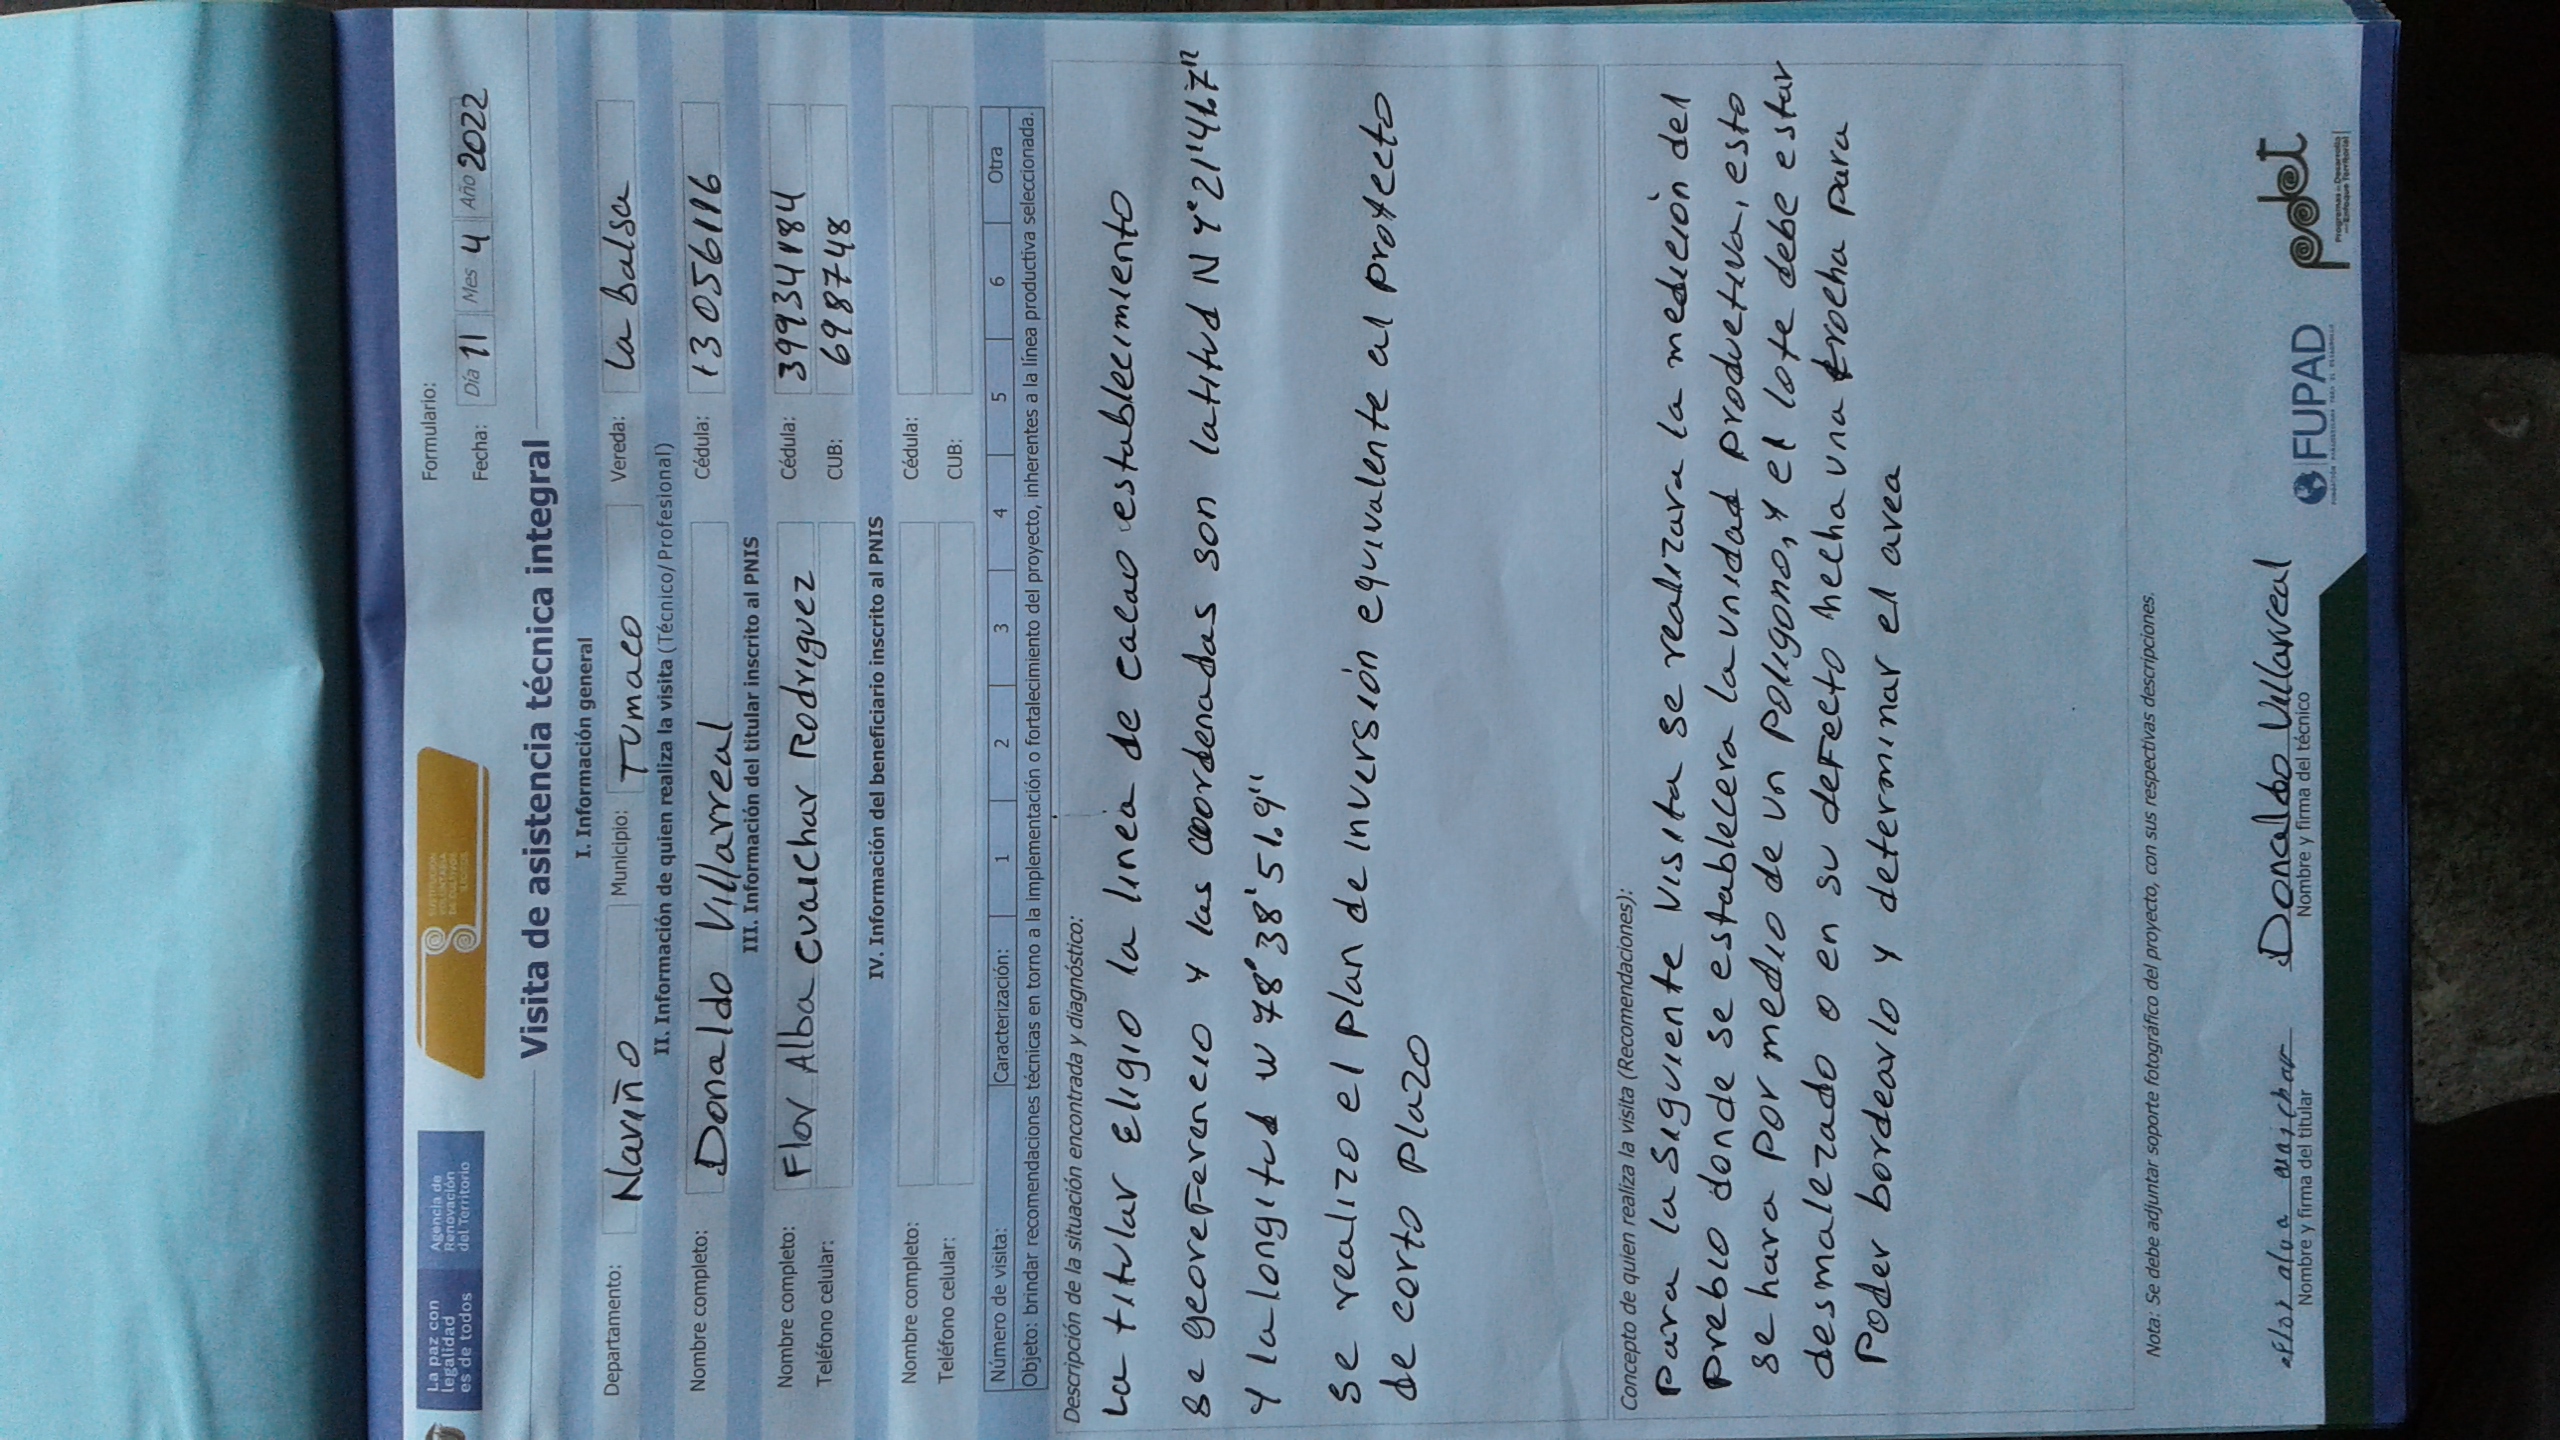 La paz con
legalidad
es de todos
Agencia de
Renovación
del Territorio
SUSTITUCIÓN
VOLUNTARIA
DE CULTIVOS
ILÍCITOS
Formulario:
Fecha: Día 11 Mes 4 Año 2022
Visita de asistencia técnica integral
I. Información general
Departamento: Nariño Municipio: Tumaco Vereda: La Balsa
II. Información de quien realiza la visita (Técnico/ Profesional)
Nombre completo: Donaldo Villarreal Cédula: 13056116
III. Información del titular inscrito al PNIS
Nombre completo: Flor Alba Cuaichar Rodriguez Cédula: 39934184
Teléfono celular: CUB: 698748
IV. Información del beneficiario inscrito al PNIS
Nombre completo: Cédula:
Teléfono celular: CUB:
Número de visita: Caracterización: 1 2 3 4 5 6 Otra
Objeto: brindar recomendaciones técnicas en torno a la implementación o fortalecimiento del proyecto, inherentes a la línea productiva seleccionada.
Descripción de la situación encontrada y diagnóstico:
La titular Eligio la linea de cacao establecimiento
se georeferencio y las coordenadas son latitud N 1°21'46.7"
y la longitud w 78°38'51.9"
se realizo el plan de inversión equivalente al proyecto
de corto plazo
Concepto de quien realiza la visita (Recomendaciones):
Para la siguiente visita se realizara la medición del
preblo donde se establecera la unidad productiva, esto
se hara por medio de un poligono, y el lote debe estar
desmalezado o en su defecto hecha una trocha para
Poder bordearlo y determinar el area
Nota: Se debe adjuntar soporte fotográfico del proyecto, con sus respectivas descripciones.
Flor alva cuaichar
Nombre y firma del titular
Donaldo Villarreal
Nombre y firma del técnico
FUPAD
FUNDACIÓN PANAMERICANA PARA EL DESARROLLO
pdet
Programas de Desarrollo
con Enfoque Territorial